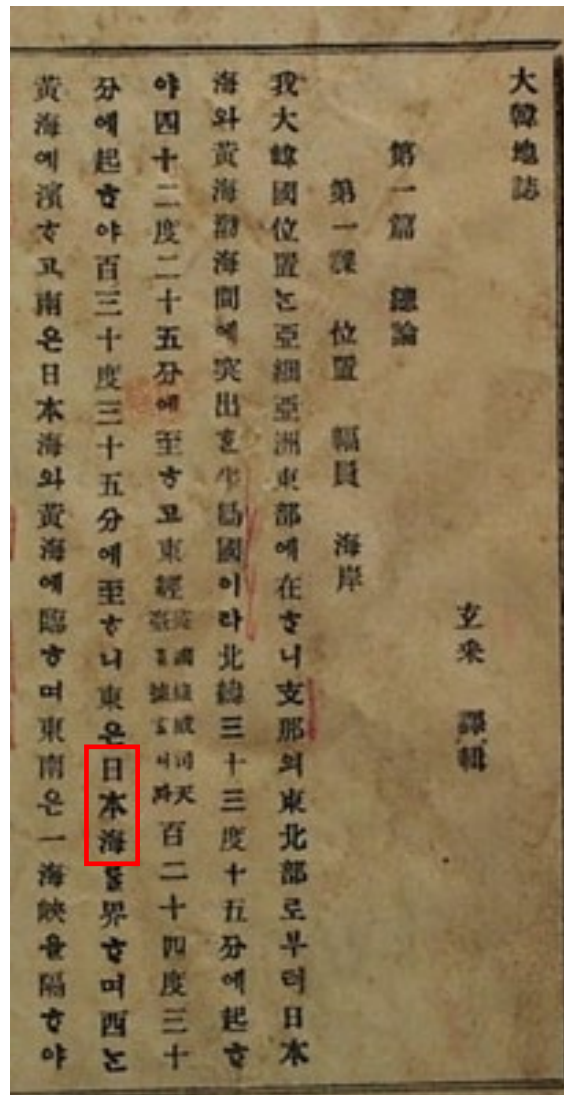 大韓地誌
玄采 譯輯
第一篇 總論
第一課 位置 幅員 海岸
我大韓國位置ᄂᆞᆫ亞細亞洲東部에在ᄒᆞ니支那의東北部로부터日本
海와黃海渤海間에突出ᄒᆞᆫ半島國이라北緯三十三度十五分에起ᄒᆞ
야四十二度二十五分에至ᄒᆞ고東經英國綠威司天臺를據ᄒᆞᆷ이라百二十四度三十
分에起ᄒᆞ야百三十度三十五分에至ᄒᆞ니東은日本海를界ᄒᆞ며西ᄂᆞᆫ
黃海에濱ᄒᆞ고南은日本海와黃海에臨ᄒᆞ며東南은一海峽을隔ᄒᆞ야